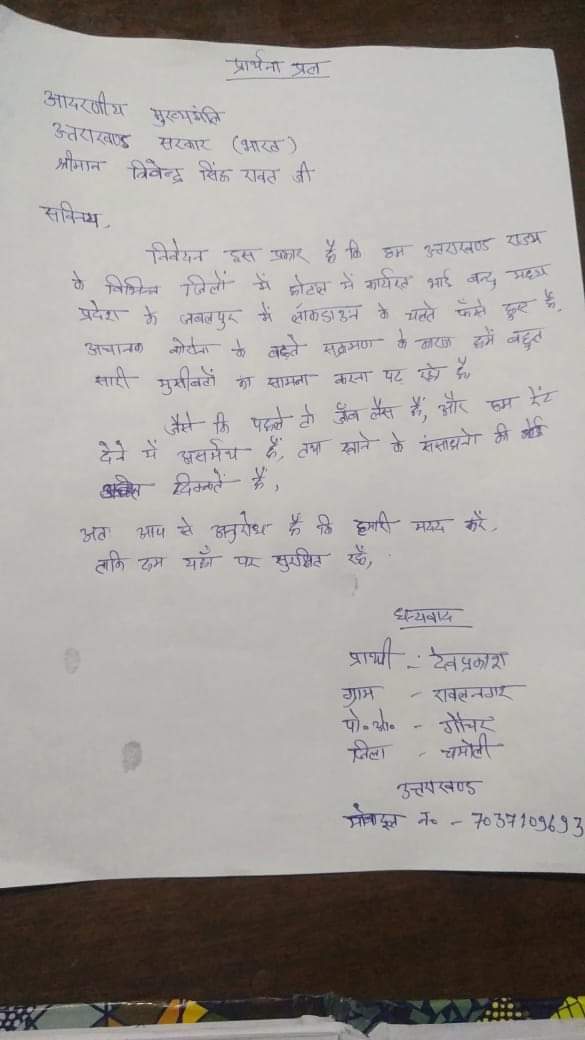 प्रार्थना पत्र
आदरणीय मुख्यमंत्रि
उत्तराखण्ड सरकार (भारत)
श्रीमान त्रिवेन्द्र सिंह रावत जी
सविनय,
निवेदन इस प्रकार है कि हम उत्तराखण्ड राज्य
के विभिन्न जिलों में होटल में कार्यरत भाई बन्धु मध्य
प्रदेश के जबलपुर में लॉकडाउन के चलते फँसे हुए है,
अचानक कोरोना के बढ़ते सक्रमण के कारण हमें बहुत
सारी मुसीबतों का सामना करना पड़ रहा है
जैसे कि पहले तो जॉब लैस हैं, और हम रेंट
देने में असर्मथ हैं, तथा खाने के संसाधनो की
दिक्कतें हैं,
अतः आप से अनुरोध है कि हमारी मदद करें,
ताकि हम यहाँ पर सुरक्षित रहें,
धन्यवाद
प्रार्थी :- देवप्रकाश
ग्राम - रावलनगर
पो०ओ० - गौचर
जिला - चमोली
उत्तराखण्ड
मोबाइल न० - 7037109693